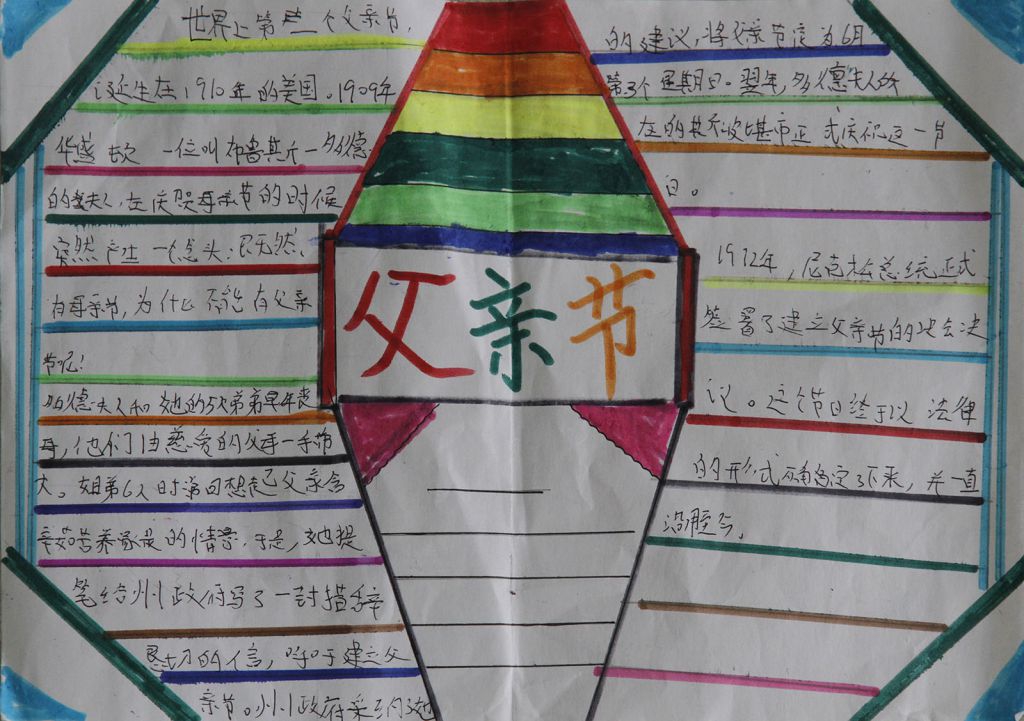 世界上第一个父亲节,
诞生在1910年的美国。1909年
华盛顿 一位叫布鲁斯斤一多德
的夫人,在庆贺母亲节的时候
突然产生一个念头:既然,
有母亲节,为什么不能有父亲
节呢!
多德夫人和她的5个弟弟早年丧
母,他们由慈爱的父亲一手
大。姐弟6人时常回想起父亲含
辛茹苦养家的情景,于是,她提
笔给州政府写了一封措辞
恳切的信,呼于建立父
亲节。州政府采纳她
父亲节
的建议,将父亲节定为6月
第3个星期日。翌年,多德夫人所
在的斯波堪市正式庆祝这一节
日。
1972年,尼克松总统正式
签署了建立父亲节的议会决
议。这个节日终于以法律
的形式确定了下来,并一直
沿